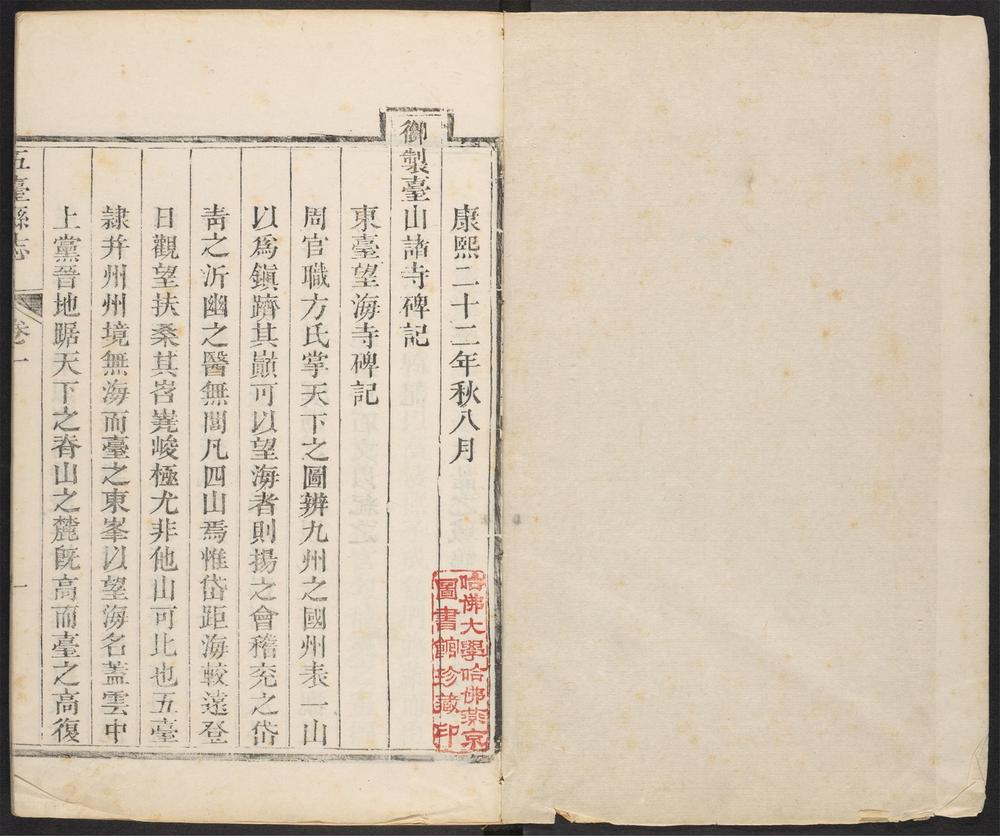 康熙二十二年秋八月
御製臺山諸寺碑記
東臺望海寺碑記
周官職方氏掌天下之圖辨九州之國州表一山
以爲鎭躋其巓可以望海者則揚之會稽兗之岱
靑之沂幽之醫無閭凡四山焉惟岱距海較遠登
日觀望扶桑其岧嶤峻極尤非他山可比也五臺
隷并州州境無海而臺之東峯以望海名蓋雲中
上黨晉地踞天下之脊山之麓旣高而臺之高復
五臺縣志
卷一
一
哈佛大學哈佛燕京
圖書館珍藏印